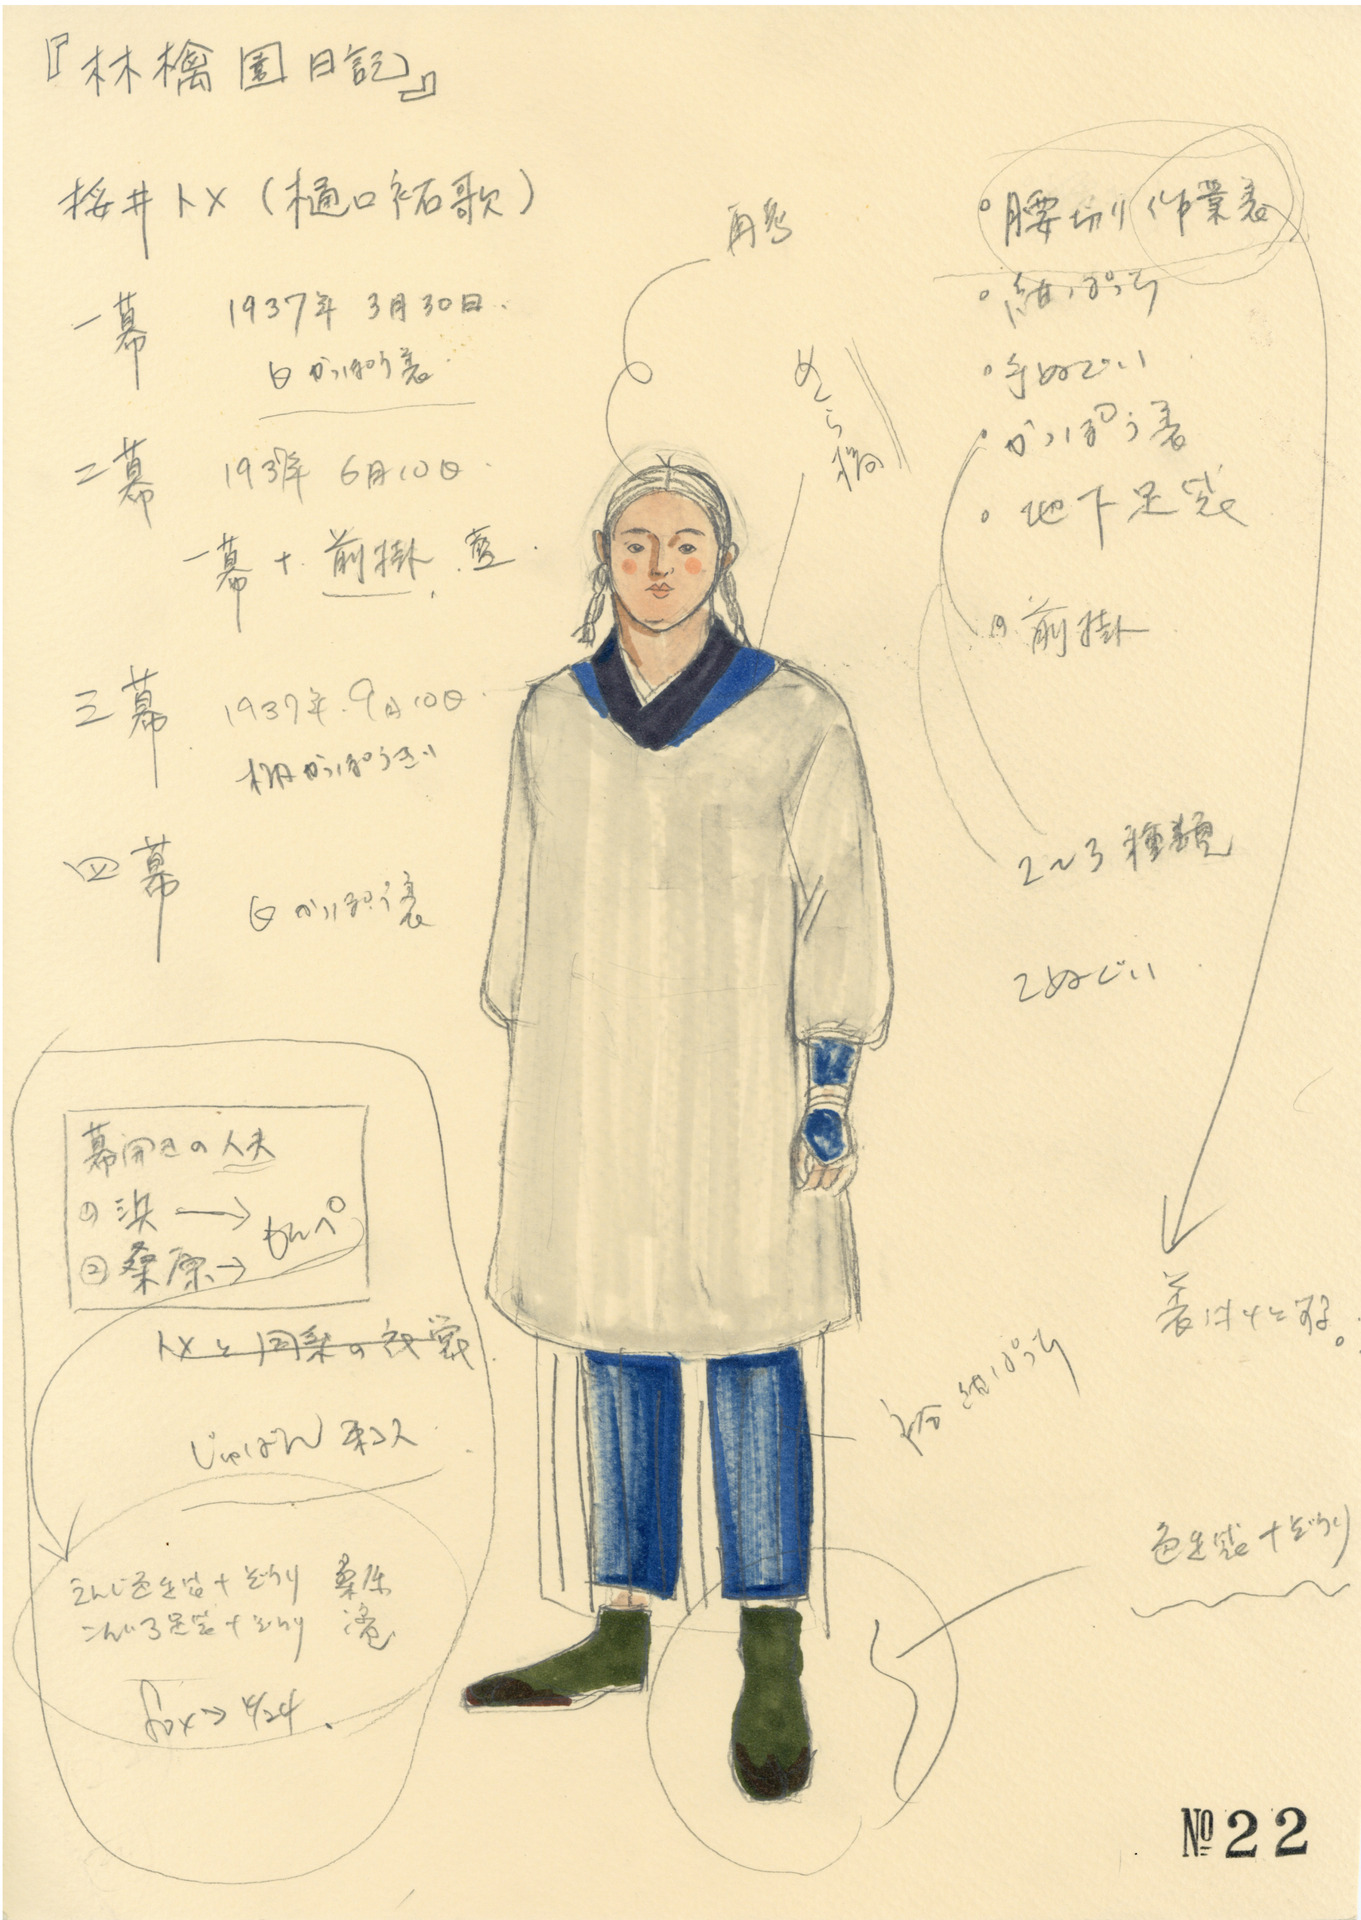 『林檎園日記』
桜井トメ（樋口裕歌）
一幕 1937年 3月30日.
白かっぽう着
二幕 1937年 6月10日.
一幕 + 前掛. 藍.
三幕 1937年.9月10日.
柄かっぽうぎ
四幕
白かっぽう着
再考
めくら縞
腰切り作業着
紺ぱっち
手ぬぐい
かっぽう着
地下足袋
前掛
2〜3種類
てぬぐい
着はしょる。
紺ぱっち
色足袋+ぞうり
幕開きの人夫
① 浜 → もんぺ
② 桑原→
トメと同系の衣裳
じゅばん
えんじ色足袋+ぞうり 桑原
こんいろ足袋+ぞうり
fax→ 4/24.
№22